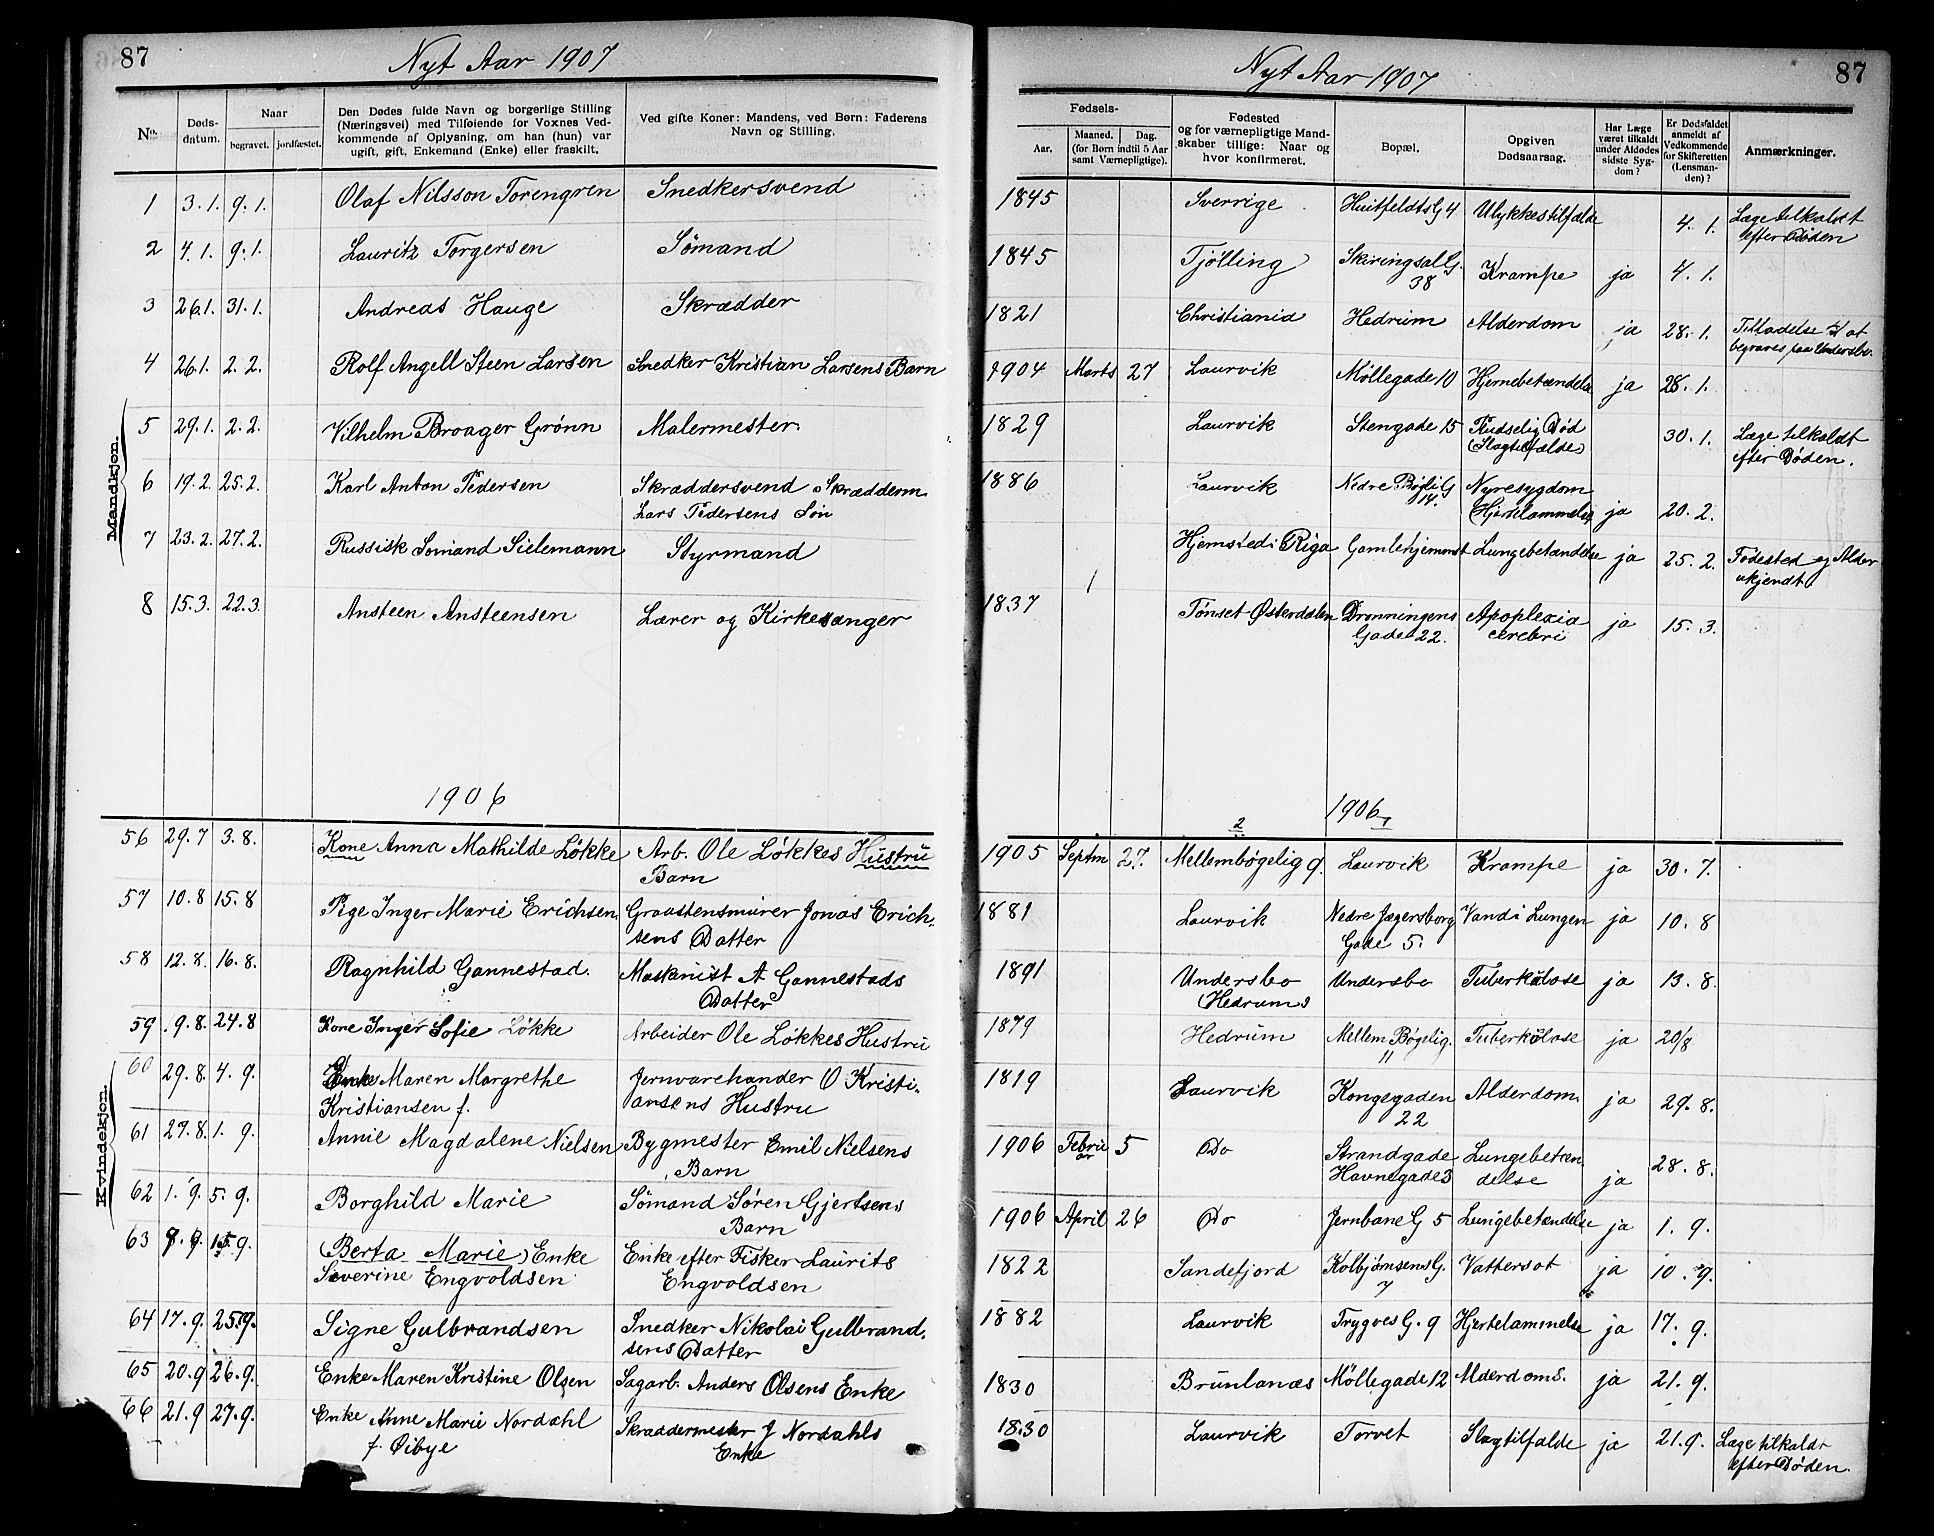 87
Nyt Aar 1907
No.
Døds-
datum.
Naar
begravet. jordfæstet.
Den Dødes fulde Navn og borgerlige Stilling
(Næringsvei) med Tilføiende for Voxnes Ved-
kommende af Oplysning, om han (hun) var
ugift, gift, Enkemand (Enke) eller fraskilt.
Ved gifte Koner: Mandens, ved Børn: Faderens
Navn og Stilling.
Mandkjøn.
1 3.1. 9.1. Olaf Nilsson Torengren Snedkersvend
2 4.1. 9.1. Lauritz Torgersen Sömand
3 26.1. 31.1. Andreas Hauge Skrædder
4 26.1. 2.2. Rolf Angell Steen Larsen Snedker Kristian Larsens Barn
5 29.1. 2.2. Vilhelm Broager Grönn Malermester
6 19.2. 25.2. Karl Anton Pedersen Skræddersvend Skrædderm
Lars Pedersens Sön
7 23.2. 27.2. Russisk Somand Sielemann Styrmand
8 15.3. 22.3. Ansteen Ansteensen Lærer og Kirkesanger
1906
Kvindekjøn.
56 29.7 3.8. Kone Anna Mathilde Lökke Arb. Ole Lökkes Hustru
Barn
57 10.8 15.8 Pige Inger Marie Erichsen Graastensmurer Jonas Erich-
sens Datter
58 12.8. 16.8. Ragnhild Gannestad. Maskinist A Gannestads
Datter
59 .9.8. 24.8 Kone Inger Sofie Lökke Arbeider Ole Lökkes Hustru
60 29.8. 4.9. Enke Maren Margrethe Jernvarehander O Kristi-
Kristiansen f. ansens Hustru
61 27.8. 1.9. Annie Magdalene Nielsen Bygmester Emil Nielsens
Barn
62 1.9. 5.9. Borghild Marie Sömand Sören Gjertsens
Barn
63 8.9. 15.9. (Berta Marie) Enke Enke efter Fisker Laurits
Severine Engvoldsen Engvoldsen
64 17.9. 25.9. Signe Gulbrandsen Snedker Nikolai Gulbrand-
sens Datter
65 20.9 26.9. Enke Maren Kristine Olsen Sagarb. Anders Olsens Enke
66 21.9 27.9. Enke Anne Marie Nordahl Skræddermester J Nordahls
f. Öibye Enke
Nyt Aar 1907
87
Fødsels-
Aar.
Maaned. Dag.
(for Børn indtil 5 Aar
samt Værnepligtige).
Fødested
og for værnepligtige Mand-
skaber tillige: Naar og
hvor konfirmeret.
Bopæl.
Opgiven
Dødsaarsag.
Har Læge
været tilkaldt
under Afdødes
sidste Syg-
dom?
Er Dødsfaldet
anmeldt af
Vedkommende
for Skifteretten
(Lensman-
den)?
Anmærkninger.
1845 Sverrige Huitfeldts G 4 Ulykkestilfælde 4.1. Læge tilkaldt
efter Döden
1845 Tjölling Skiringsal G. Krampe ja 4.1.
38
1821 Christiania Hedrum Alderdom ja 28.1. Tilladelse at
begraves paa Undersbo.
1904 Marts 27 Laurvik Möllegade 10 Hjernebetændelse ja 28.1.
1829 Laurvik Stengade 15 Pludselig Död 30.1. Læge tilkaldt
(Slagtilfælde) efter Döden.
1886 Laurvik Nedre Bögeli G Nyresygdom
14. (Hjertelammelse) ja 20.2.
Hjemsted i Riga Gamlehjemmet Lungebetændelse ja 25.2. Födested og Alder
ukjendt
1837 Tönset Österdalen Dronningens Apoplexia ja 15.3.
Gade 22. cerebri
1906
1905 Septm 27. Mellembögelig 9. Laurvik Krampe ja 30.7.
1881 Laurvik Nedre Jægersborg Vand i Lungen ja 10.8
Gade 5.
1891 Undersbo Undersbo Tuberkulose ja 13.8.
(Hedrum)
1879 Hedrum Mellem Bögelig. Tuberkulose ja 20/8
11
1819 Laurvik Kongegaden Alderdom. ja 29.8.
22
1906 Febru 5 Do Strandgade Lungebetæn
ar Havnegade 3 delse ja 28.8.
1906 April 26 Do Jernbane G 5 Lungebetændelse ja 1.9.
1822 Sandefjord Kolbjörnsens G. Vattersot ja 10.9.
7
1882 Laurvik Trygves G. 9 Hjertelammelse ja 17.9.
1830 Brunlanæs Möllegade 12 Alderdoms. ja 21.9.
1830 Laurvik Torvet Slagtilfælde ja 21.9. Læge tilkaldt
efter Döden.